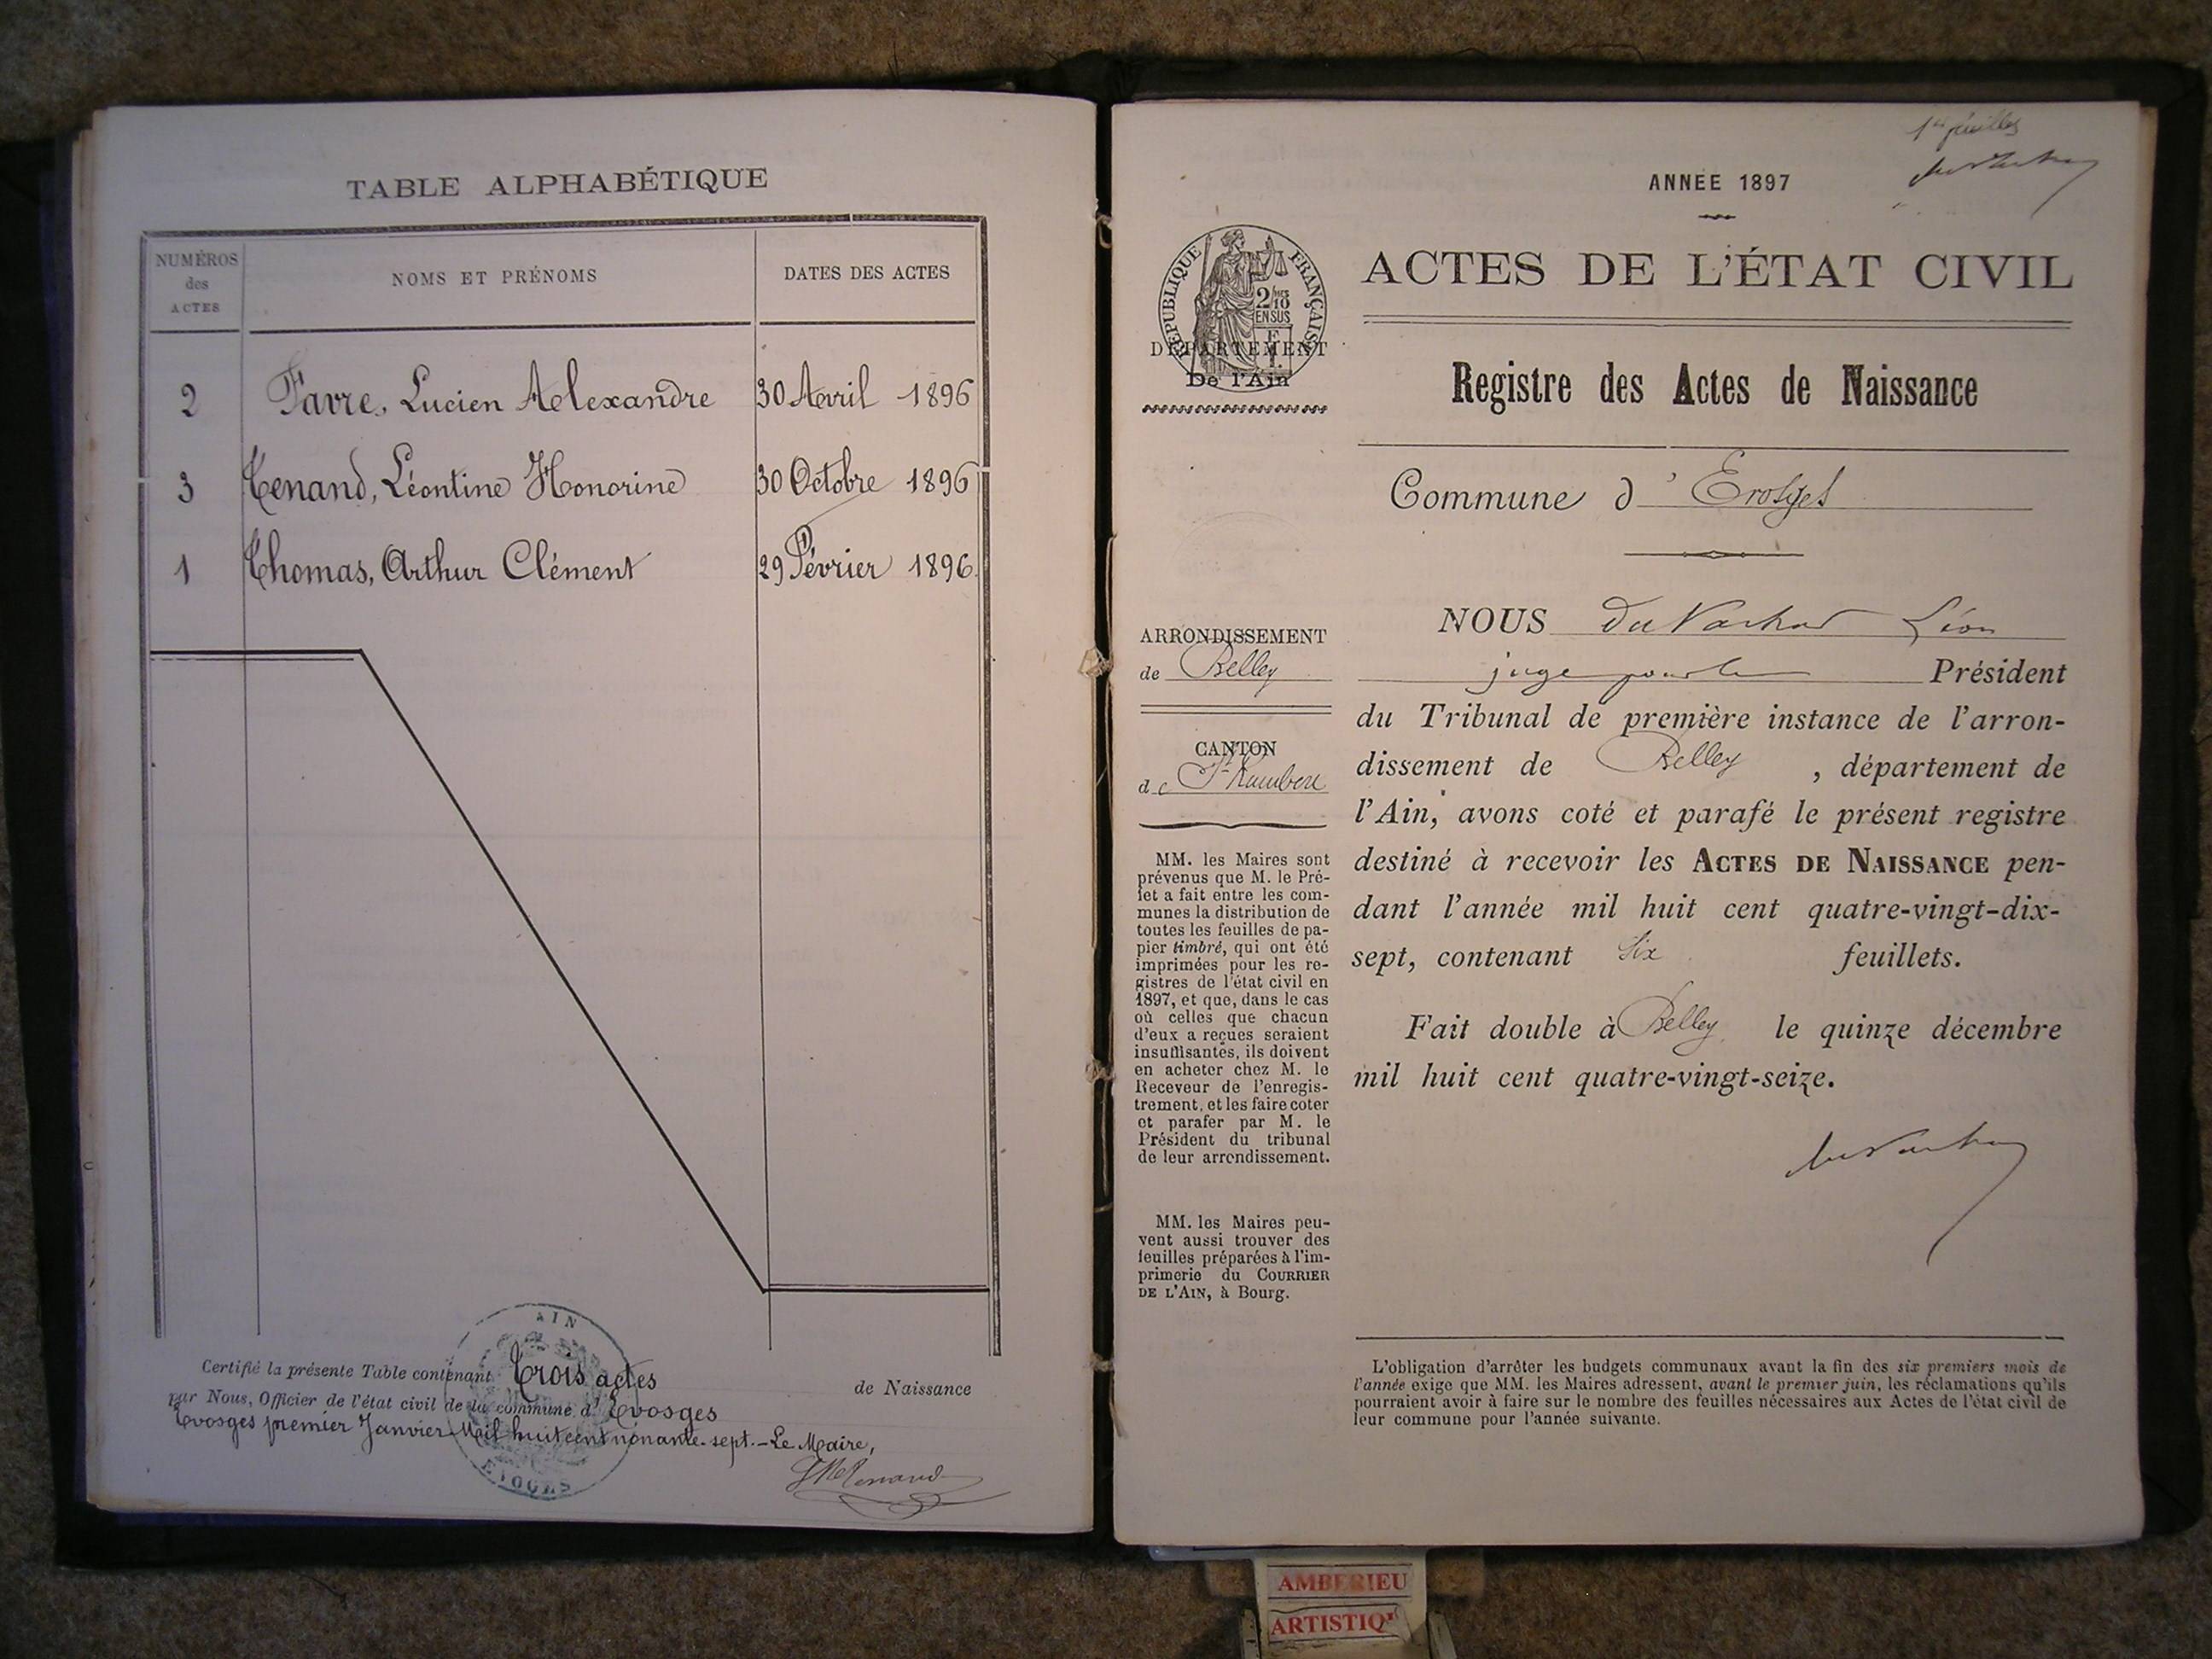 TABLE ALPHABÉTIQUE
NUMÉROS des ACTES
NOMS ET PRÉNOMS
DATES DES ACTES
2 Favre, Lucien Alexandre 30 Avril 1896
3 Tenand, Léontine Honorine 30 Octobre 1896
1 Thomas, Arthur Clément 29 Février 1896
Certifié la présente Table contenant Trois actes de Naissance
par Nous, Officier de l'état civil de la commune d' Evosges
Evosges premier Janvier Mil huit cent nonante-sept. – Le Maire,
AIN
1er feuillet
ANNÉE 1897
RÉPUBLIQUE FRANÇAISE
2/10 EN SUS
DÉPARTEMENT
De l'Ain
ACTES DE L'ÉTAT CIVIL
Registre des Actes de Naissance
Commune d' Evosges
ARRONDISSEMENT
de Belley
CANTON
de St Rambert
MM. les Maires sont
prévenus que M. le Pré-
fet a fait entre les com-
munes la distribution de
toutes les feuilles de pa-
pier timbré, qui ont été
imprimées pour les re-
gistres de l'état civil en
1897, et que, dans le cas
où celles que chacun
d'eux a reçues seraient
insuffisantes, ils doivent
en acheter chez M. le
Receveur de l'enregis-
trement, et les faire coter
et parafer par M. le
Président du tribunal
de leur arrondissement.
MM. les Maires peu-
vent aussi trouver des
feuilles préparées à l'im-
primerie du COURRIER
DE L'AIN, à Bourg.
NOUS Léon
juge pour le Président
du Tribunal de première instance de l'arron-
dissement de Belley, département de
l'Ain, avons coté et parafé le présent registre
destiné à recevoir les ACTES DE NAISSANCE pen-
dant l'année mil huit cent quatre-vingt-dix-
sept, contenant six feuillets.
Fait double à Belley le quinze décembre
mil huit cent quatre-vingt-seize.
L'obligation d'arrêter les budgets communaux avant la fin des six premiers mois de
l'année exige que MM. les Maires adressent, avant le premier juin, les réclamations qu'ils
pourraient avoir à faire sur le nombre des feuilles nécessaires aux Actes de l'état civil de
leur commune pour l'année suivante.
AMBERIEU
ARTISTIQ